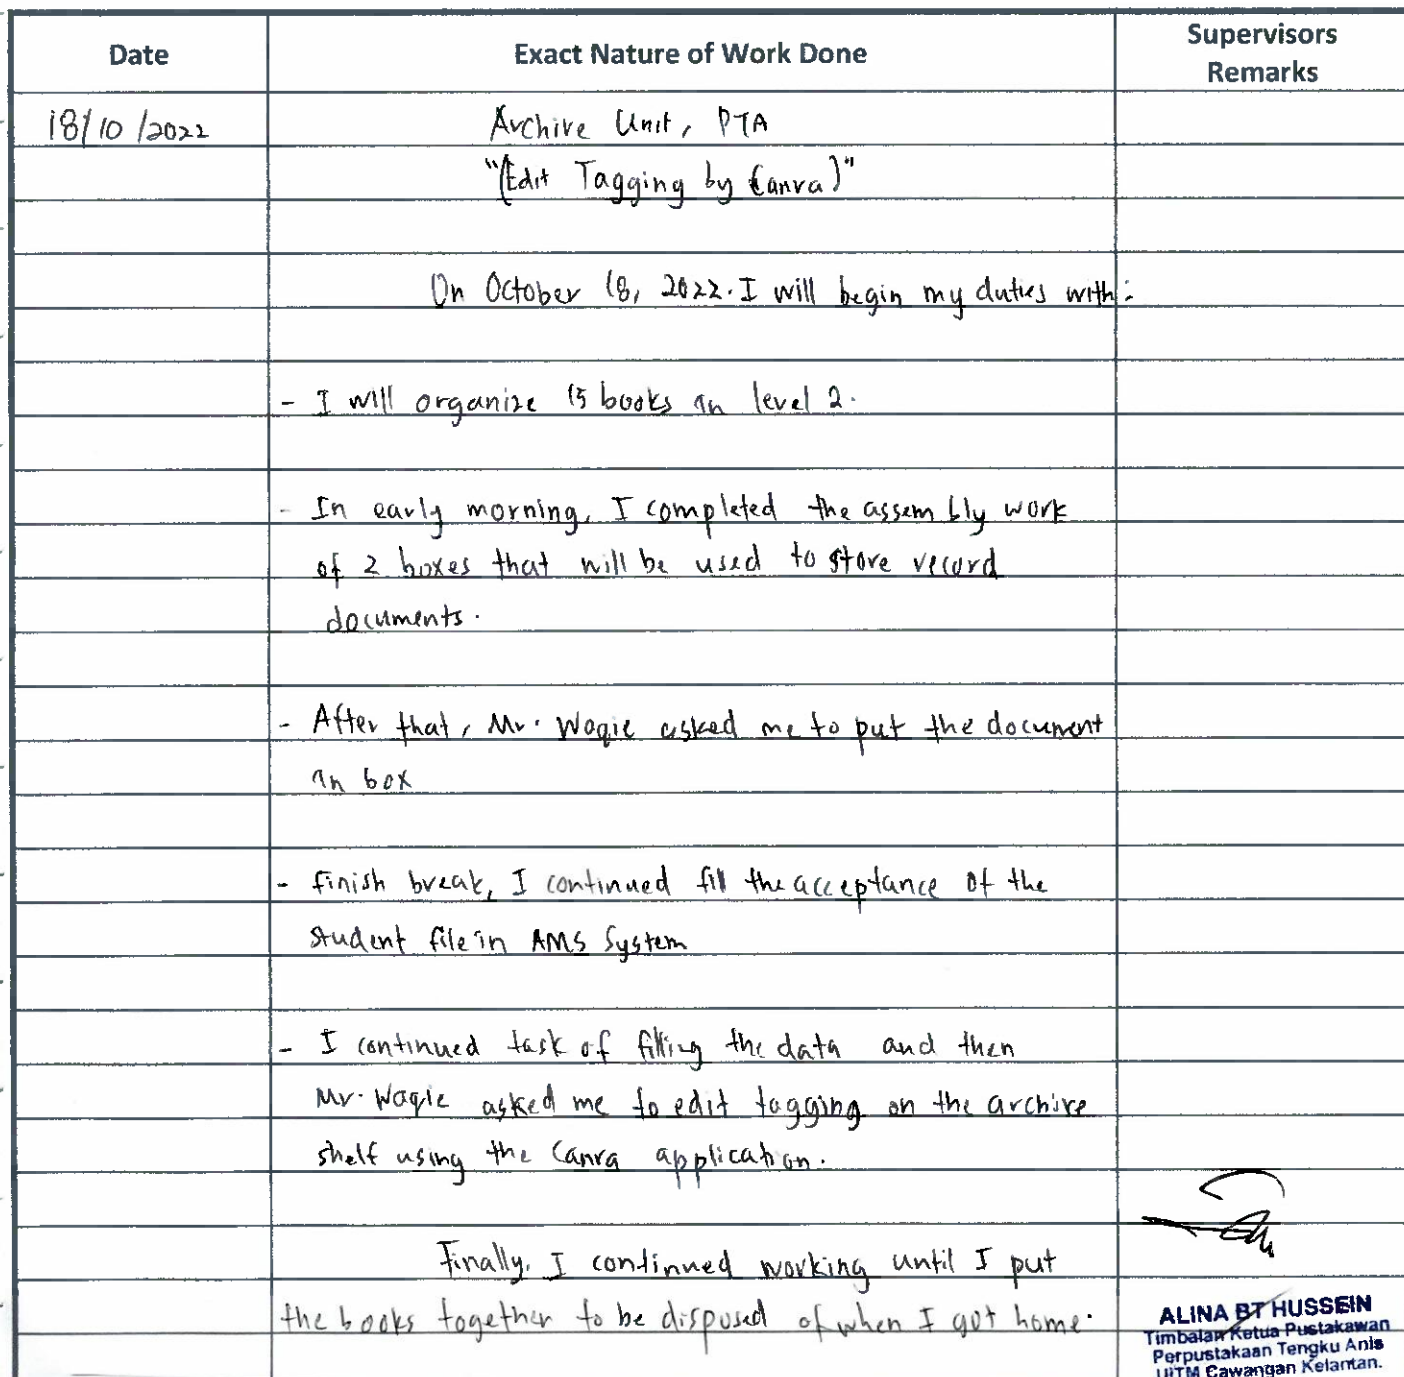 Date
Exact Nature of Work Done
Supervisors
Remarks
18/10/2022
Archive Unit, PTA
"(Edit Tagging by Canva)"
On October 18, 2022. I will begin my duties with:
- I will organize 15 books in level 2.
- In early morning, I completed the assembly work
of 2 boxes that will be used to store record
documents.
- After that, Mr. Waqie asked me to put the document
in box
- Finish break, I continued fill the acceptance of the
student file in AMS System
- I continued task of filling the data and then
Mr. Waqie asked me to edit tagging on the archive
shelf using the Canva application.
Finally, I continued working until I put
the books together to be disposed of when I got home.
ALINA BT HUSSEIN
Timbalan Ketua Pustakawan
Perpustakaan Tengku Anis
UiTM Cawangan Kelantan.